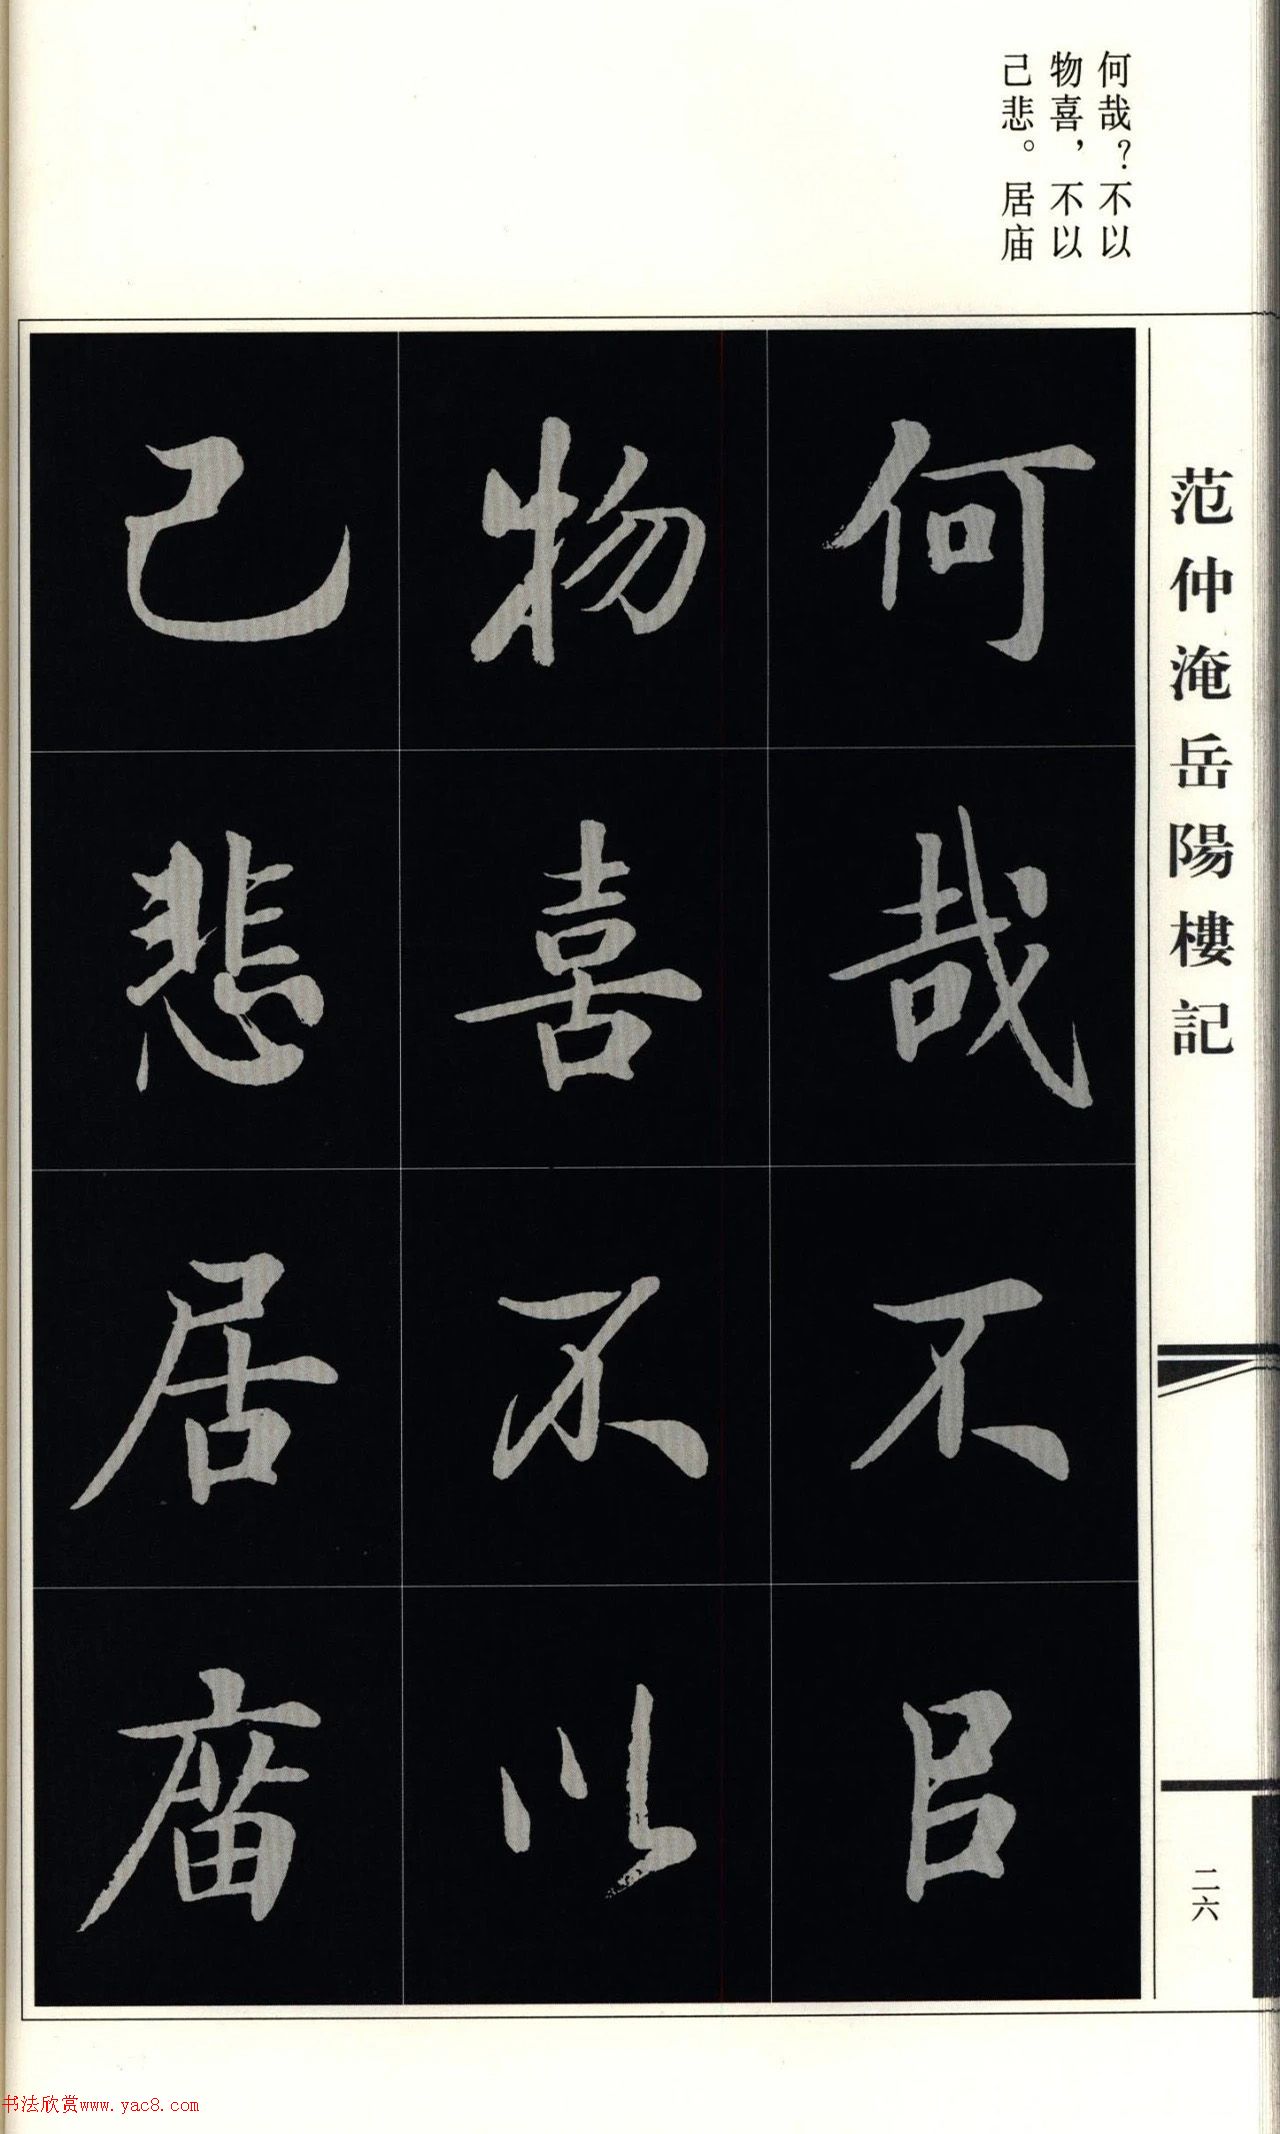 何哉？不以
物喜，不以
己悲。居庙
范仲淹岳陽樓記
何哉不㠯
物喜不以
己悲居庿
二六
书法欣赏www.yac8.com